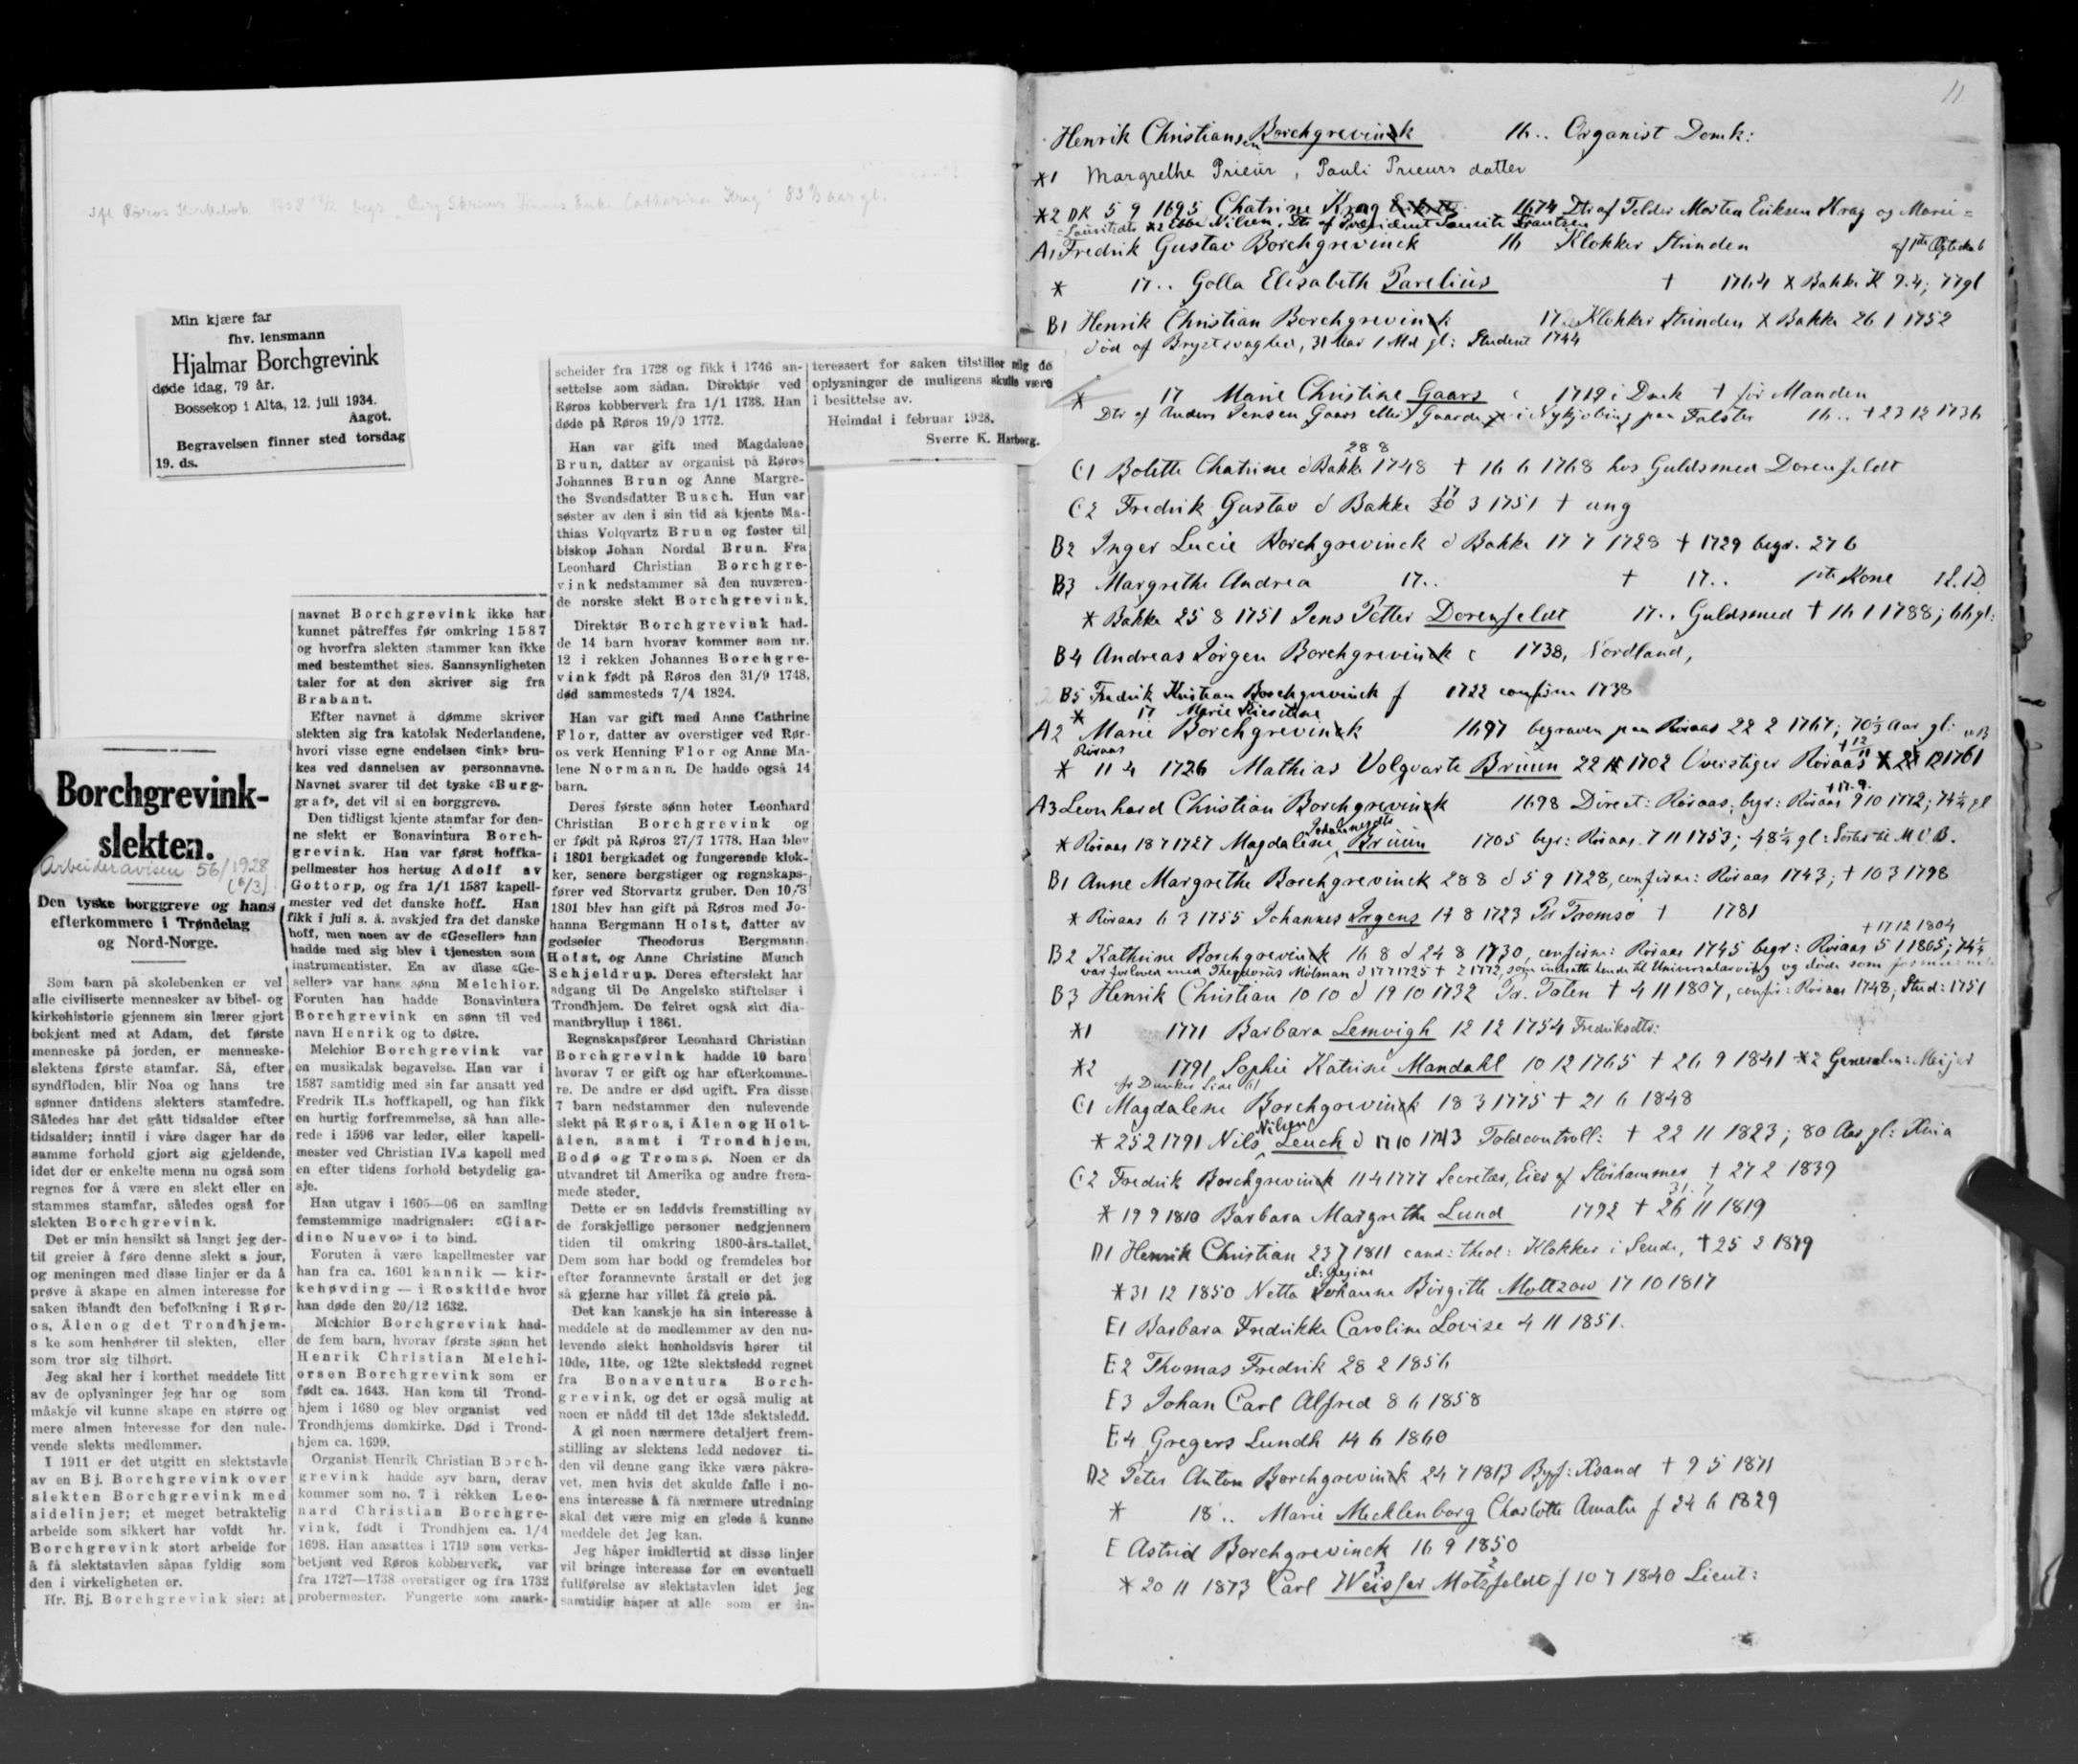 Min kjære far
fhv. lensmann
Hjalmar Borchgrevink
døde idag, 79 år.
Bossekop i Alta, 12. juli 1934.
Aagot.
Begravelsen finner sted torsdag
19. ds.
Borchgrevink-
slekten.
Arbeideravisen 56/1928
(6/3)
Den tyske borggreve og hans
efterkommere i Trøndelag
og Nord-Norge.
Som barn på skolebenken er vel
alle civiliserte mennesker av bibel- og
kirkehistorie gjennem sin lærer gjort
bekjent med at Adam, det første
menneske på jorden, er menneske-
slektens første stamfar. Så, efter
syndfloden, blir Noa og hans tre
sønner datidens slekters stamfedre.
Således har det gått tidsalder efter
tidsalder; inntil i våre dager har de
samme forhold gjort sig gjeldende,
idet der er enkelte menn nu også som
regnes for å være en slekt eller en
stammes stamfar, således også for
slekten Borchgrevink.
Det er min hensikt så langt jeg der-
til greier å føre denne slekt a jour,
og meningen med disse linjer er da å
prøve å skape en almen interesse for
saken iblandt den befolkning i Rør-
os, Ålen og det Trondhjem-
s ke som henhører til slekten, eller
som tror sig tilhørt.
Jeg skal her i korthet meddele litt
av de oplysninger jeg har og som
måskje vil kunne skape en større og
mere almen interesse for den nule-
vende slekts medlemmer.
I 1911 er det utgitt en slektstavle
av en Bj. Borchgrevink over
slekten Borchgrevink med
sidelinjer; et meget betraktelig
arbeide som sikkert har voldt hr.
Borchgrevink stort arbeide for
å få slektstavlen såpas fyldig som
den i virkeligheten er.
Hr. Bj. Borchgrevink sier: at
navnet Borchgrevink ikke har
kunnet påtreffes før omkring 1587
og hvorfra slekten stammer kan ikke
med bestemthet sies. Sannsynligheten
taler for at den skriver sig fra
Brabant.
Efter navnet å dømme skriver
slekten sig fra katolsk Nederlandene,
hvori visse egne endelsen «ink» bru-
kes ved dannelsen av personnavne.
Navnet svarer til det tyske «Burg-
graf», det vil si en borggreve.
Den tidligst kjente stamfar for den-
ne slekt er Bonavintura Borch-
grevink. Han var først hoffka-
pellmester hos hertug Adolf av
Gottorp, og fra 1/1 1587 kapell-
mester ved det danske hoff. Han
fikk i juli s. å. avskjed fra det danske
hoff, men noen av de «Geseller» han
hadde med sig blev i tjenesten som
instrumentister. En av disse «Ge-
seller» var hans sønn Melchior.
Foruten han hadde Bonavintura
Borchgrevink en sønn til ved
navn Henrik og to døtre.
Melchior Borchgrevink var
en musikalsk begavelse. Han var i
1587 samtidig med sin far ansatt ved
Fredrik II.s hoffkapell, og han fikk
en hurtig forfremmelse, så han alle-
rede i 1596 var leder, eller kapell-
mester ved Christian IV.s kapell med
en efter tidens forhold betydelig ga-
sje.
Han utgav i 1605—06 en samling
femstemmige madrignaler: «Giar-
dino Nuevo» i to bind.
Foruten å være kapellmester var
han fra ca. 1601 kannik — kir-
kehøvding — i Roskilde hvor
han døde den 20/12 1632.
Melchior Borchgrevink had-
de fem barn, hvorav første sønn het
Henrik Christian Melchi-
orsen Borchgrevink som er
født ca. 1643. Han kom til Trond-
hjem i 1680 og blev organist ved
Trondhjems domkirke. Død i Trond-
hjem ca. 1699.
Organist Henrik Christian Borch-
grevink hadde syv barn, derav
kommer som no. 7 i rekken Leo-
nard Christian Borchgre-
vink, født i Trondhjem ca. 1/4
1698. Han ansattes i 1719 som verks-
betjent ved Røros kobberverk, var
fra 1727—1738 overstiger og fra 1732
probermester. Fungerte som mark-
scheider fra 1728 og fikk i 1746 an-
settelse som sådan. Direktør ved
Røros kobberverk fra 1/1 1738. Han
døde på Røros 19/9 1772.
Han var gift med Magdalene
Brun, datter av organist på Røros
Johannes Brun og Anne Margre-
the Svendsdatter Busch. Hun var
søster av den i sin tid så kjente Ma-
thias Volqvartz Brun og foster til
biskop Johan Nordal Brun. Fra
Leonhard Christian Borchgre-
vink nedstammer så den nuværen-
de norske slekt Borchgrevink.
Direktør Borchgrevink had-
de 14 barn hvorav kommer som nr.
12 i rekken Johannes Borchgre-
vink født på Røros den 31/9 1748,
død sammesteds 7/4 1824.
Han var gift med Anne Cathrine
Flor, datter av overstiger ved Rør-
os verk Henning Flor og Anne Ma-
lene Normann. De hadde også 14
barn.
Deres første sønn heter Leonhard
Christian Borchgrevink og
er født på Røros 27/7 1778. Han blev
i 1801 bergkadet og fungerende klok-
ker, senere bergstiger og regnskaps-
fører ved Storvartz gruber. Den 10/3
1801 blev han gift på Røros med Jo-
hanna Bergmann Holst, datter av
godseier Theodorus Bergmann
Holst, og Anne Christine Munch
Schjeldrup. Deres efterslekt har
adgang til De Angelske stiftelser i
Trondhjem. De feiret også sitt dia-
mantbryllup i 1861.
Regnskapsfører Leonhard Christian
Borchgrevink hadde 10 barn
hvorav 7 er gift og har efterkomme-
re. De andre er død ugift. Fra disse
7 barn nedstammer den nulevende
slekt på Røros, i Ålen og Holt-
ålen, samt i Trondhjem,
Bodø og Tromsø. Noen er da
utvandret til Amerika og andre frem-
mede steder.
Dette er en leddvis fremstilling av
de forskjellige personer nedgjennem
tiden til omkring 1800-års-tallet.
Dem som har bodd og fremdeles bor
efter forannevnte årstall er det jeg
så gjerne har villet få greie på.
Det kan kanskje ha sin interesse å
meddele at de medlemmer av den nu-
levende slekt henholdsvis hører til
10de, 11te, og 12te slektsledd regnet
fra Bonaventura Borch-
grevink, og det er også mulig at
noen er nådd til det 13de slektsledd.
Å gi noen nærmere detaljert frem-
stilling av slektens ledd nedover ti-
den vil denne gang ikke være påkre-
vet, men hvis det skulde falle i no-
ens interesse å få nærmere utredning
skal det være mig en glede å kunne
meddele det jeg kan.
Jeg håper imidlertid at disse linjer
vil bringe interesse for en eventuell
fullførelse av slektstavlen idet jeg
samtidig håper at alle som er in-
teressert for saken tilstiller mig de
oplysninger de muligens skulle være
i besittelse av.
Heimdal i februar 1928.
Sverre K. Harborg.
11
Henrik Christiansen Borchgrevinck 16.. Organist Domk:
*1 Margrethe Prieur, Pauli Prieurs datter
*2 DK 5 9 1695 Chatrine Krag 1674 Dtr af Tolder Morten Eriksen Krag og Maren =
A1 Fredrik Gustav Borchgrevinck 16 Klokker Strinden af 1ste Ægteskab
* 17.. Golla Elisabeth Parelius † 1764 X Bakke K 9.4; 77 gl
B1 Henrik Christian Borchgrevinck 17.. Klokker Strinden X Bakke 26 1 1752
død af Brystsvaghed, 31 Aar 1 Md gl: Student 1744
* 17 Marie Christine Gaars c 1719 i Dmk † før Manden
Dtr af Anders Jensen Gaars eller Gaarder i Nykjøbing paa Falster 16.. † 23 12 1736
28 8
C1 Bolette Chatrine d Bakke 1748 † 16 6 1768 hos Guldsmed Dorenfeldt
C2 Fredrik Gustav d Bakke 17 3 1751 † ung
B2 Inger Lucie Borchgrevinck d Bakke 17 7 1728 † 1729 begr. 27 6
B3 Margrethe Andrea 17.. † 17.. 1ste Kone
* Bakke 25 8 1751 Jens Petter Dorenfeldt 17.. Guldsmed † 16 1 1788; 66 gl:
B4 Andreas Jørgen Borchgrevinck c 1738, Nordland,
B5 Fredrik Kristian Borchgrevinck f 1722 confirm 1738
* 17
A2 Marie Borchgrevinck 1697 begraven paa Røraas 22 2 1767; 70½ Aar gl:
Røraas
* 11 4 1726 Mathias Volqvartz Bruun 22 1702 Overstiger Røraas 1761
A3 Leonhard Christian Borchgrevinck 1698 Direct: Røraas; begr: Røraas 9 10 1772; 74¼ gl
* Røraas 18 7 1727 Magdalene Johannesdtr Bruun 1705 begr: Røraas 7 11 1753; 48¼ gl: Søster til M V B.
B1 Anne Margrethe Borchgrevinck 28 8 d 5 9 1728, confirm: Røraas 1743; † 10 3 1798
* Røraas 6 3 1755 Johannes Irgens 14 8 1723 Pr Tromsø † 1781
† 17 12 1804
B2 Kathrine Borchgrevinck 16 8 d 24 8 1730, confirm: Røraas 1745 begr: Røraas 5 1 1805; 74¼
var forlovet med Theodorus Mølman d 17 7 1725 † 2 1772, som indsatte hende til Universalarving og døde som
B3 Henrik Christian 10 10 d 19 10 1732 Pr. Talen † 4 11 1807, confir: Røraas 1748; Stud: 1751
*1 1771 Barbara Lemvigh 12 12 1754 Fredriksdtr:
*2 1791 Sophie Katrine Mandahl 10 12 1765 † 26 9 1841 *2 Generalm: Meijer
C1 Magdalene Borchgrevinck 18 3 1775 † 21 6 1848
* 25 2 1791 Nils Nilsen Leuch d 17 10 1743 Toldcontroll: † 22 11 1823; 80 Aar gl: Xnia
C2 Fredrik Borchgrevinck 11 4 1777 Secretær, Eier af Storhammer † 27 2 1839
31. 7
* 19 9 1810 Barbara Margrethe Lund 1792 † 26 11 1819
D1 Henrik Christian 23 7 1811 cand: theol: Klokker i Sende, † 25 2 1879
el: Regine
* 31 12 1850 Netta Johanne Birgitte Moltzow 17 10 1817
E1 Barbara Fredrikke Caroline Lovise 4 11 1851.
E2 Thomas Fredrik 28 2 1856
E3 Johan Carl Alfred 8 6 1858
E4 Gregers Lundh 14 6 1860
D2 Peter Anton Borchgrevinck 24 7 1813 Byf: Xsand † 9 5 1871
* 18.. Marie Mecklenborg Charlotte Amalie f 24 6 1829
E Astrid Borchgrevinck 16 9 1850
* 20 11 1873 Carl Motzfeldt f 10 7 1840 Lieut: